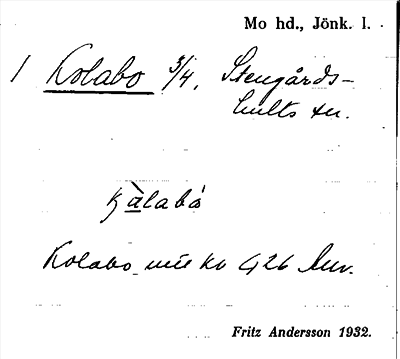 Mo hd., Jönk. l.
1 Kolabo 3/4, Stengårds-
hults sn.
kàlabó
Kolabo
Fritz Andersson 1932.